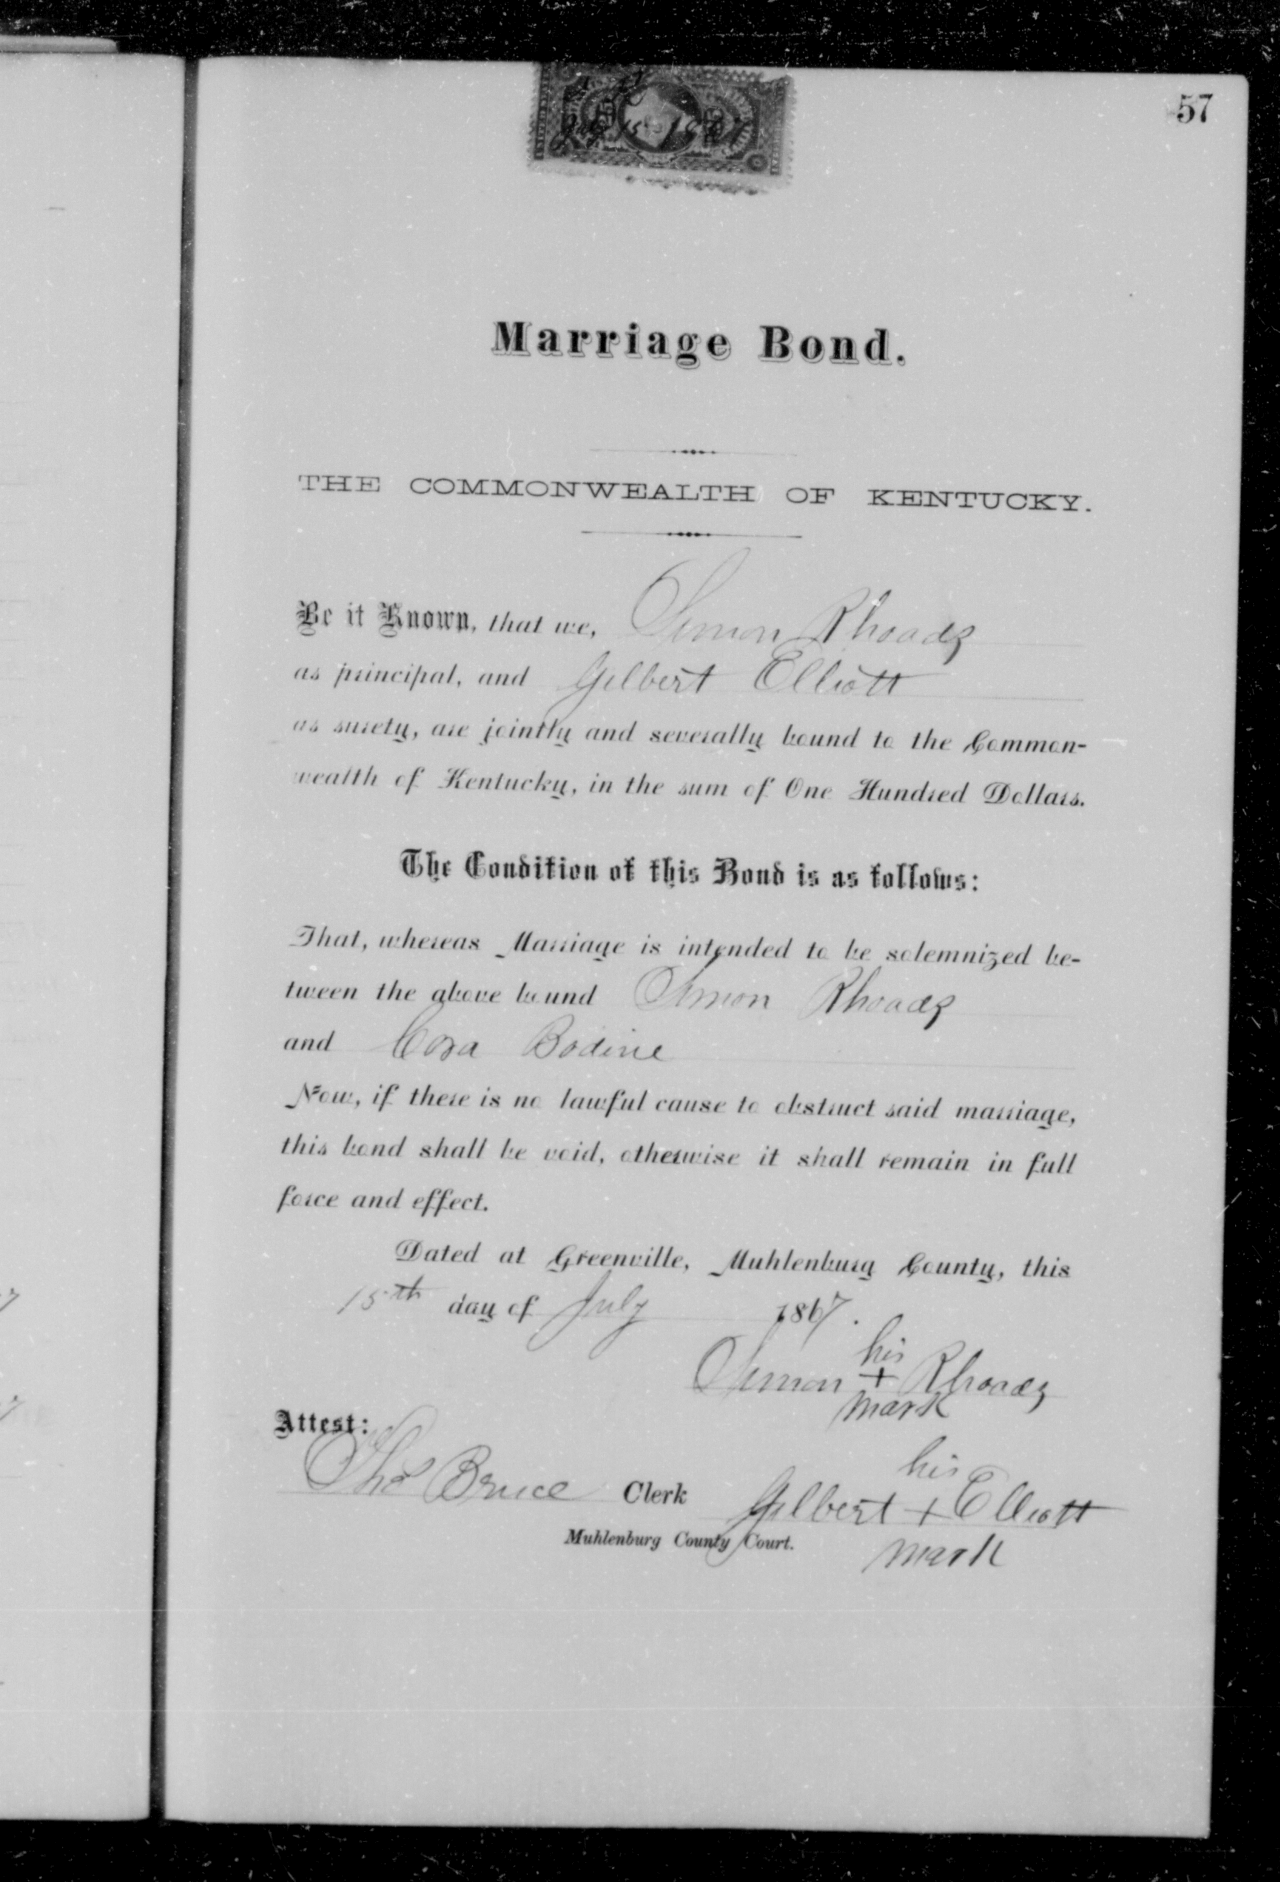 57
July 15 1867
Marriage Bond.
THE COMMONWEALTH OF KENTUCKY.
Be it Known, that we, Simon Rhoads
as principal, and Gilbert Elliott
as surety, are jointly and severally bound to the Common-
wealth of Kentucky, in the sum of One Hundred Dollars.
The Condition of this Bond is as follows:
That, whereas Marriage is intended to be solemnized be-
tween the above bound Simon Rhoads
and Cora Bodine
Now, if there is no lawful cause to obstruct said marriage,
this bond shall be void, otherwise it shall remain in full
force and effect.
Dated at Greenville, Muhlenburg County, this
15th day of July 1867.
his
Simon + Rhoads
mark
Attest:
Thos Bruce Clerk
Muhlenburg County Court.
his
Gilbert + Elliott
mark